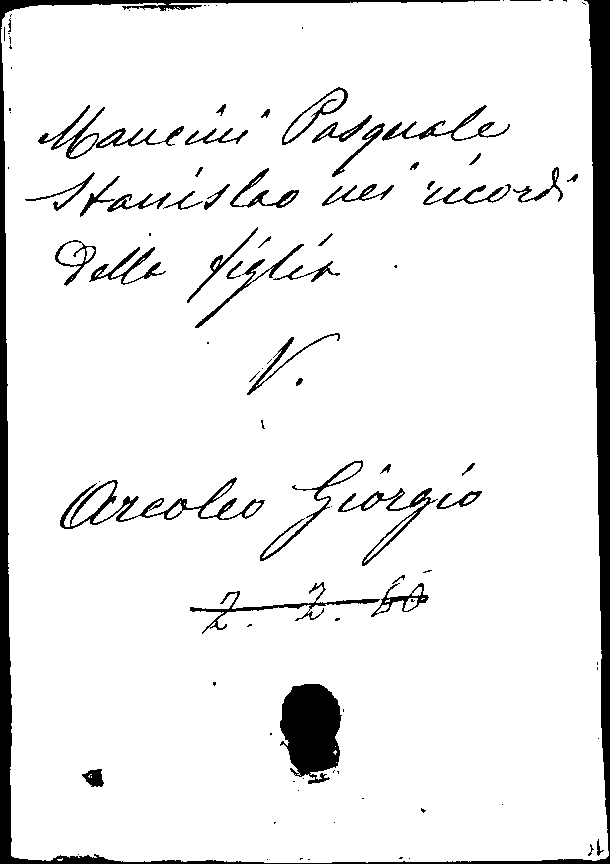 Mancini Pasquale
Stanislao nei ricordi
della figlia
V.
Arcoleo Giorgio
2. 2. 60